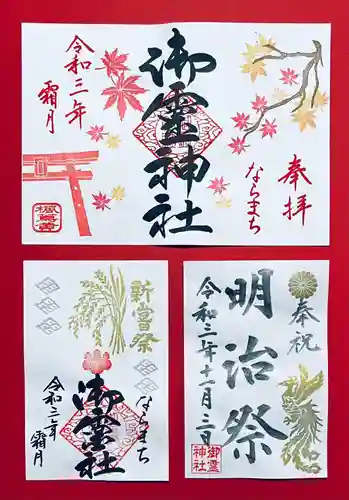 奉拝
ならまち
御霊神社
令和三年
霜月
新嘗祭
ならまち
御霊社
令和三年
霜月
奉祝
明治祭
令和三年十一月三日
御霊
神社